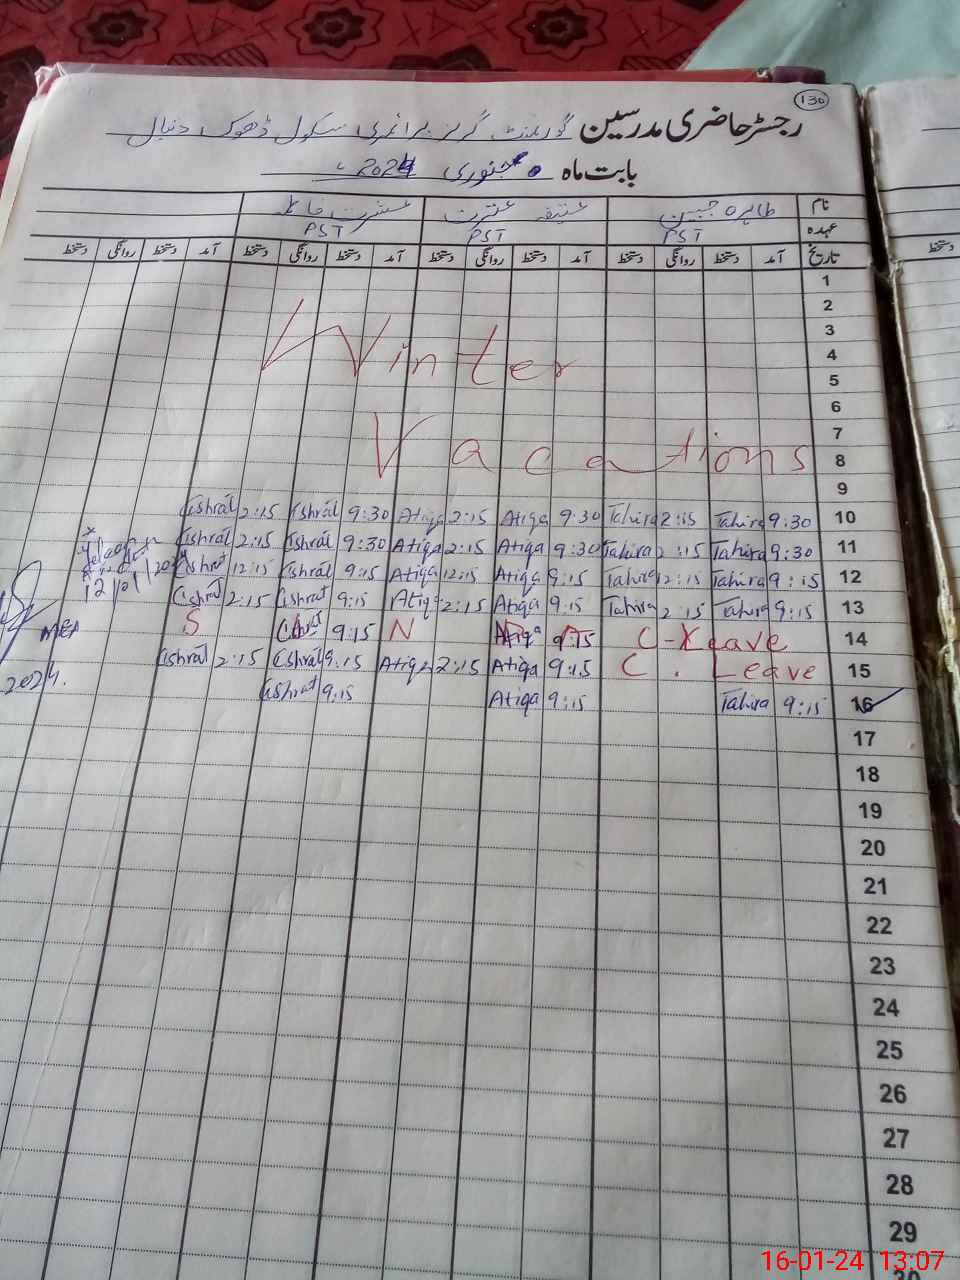 130
رجسٹر حاضری مدرسین گورنمنٹ گرلز پرائمری سکول ڈھوک دنیال
بابت ماہ جنوری 2024ء
نام طاہرہ جبین عتیقہ عشرت عشرت فاطمہ
عہدہ PST PST PST
تاریخ آمد دستخط روانگی دستخط آمد دستخط روانگی دستخط آمد دستخط روانگی دستخط آمد دستخط روانگی دستخط
1
2
3
Winter
4
5
6
7
Vacations
8
9
10 9:30 Tahira 2:15 Tahira 9:30 Atiqa 2:15 Atiqa 9:30 Ishrat 2:15 Ishrat
11 9:30 Tahira 2:15 Tahira 9:30 Atiqa 2:15 Atiqa 9:30 Ishrat 2:15 Ishrat
12 9:15 Tahira 12:15 Tahira 9:15 Atiqa 12:15 Atiqa 9:15 Ishrat 12:15 Ishrat
13 9:15 Tahira 2:15 Tahira 9:15 Atiqa 2:15 Atiqa 9:15 Ishrat 2:15 Ishrat
14 C-Leave 9:15 Atiqa N 9:15 Ishrat S
15 C. Leave 9:15 Atiqa 2:15 Atiqa 9:15 Ishrat 2:15 Ishrat
16 9:15 Tahira 9:15 Atiqa 9:15 Ishrat
MEA
2024.
17
18
19
20
21
22
23
24
25
26
27
28
29
30
16-01-24 13:07